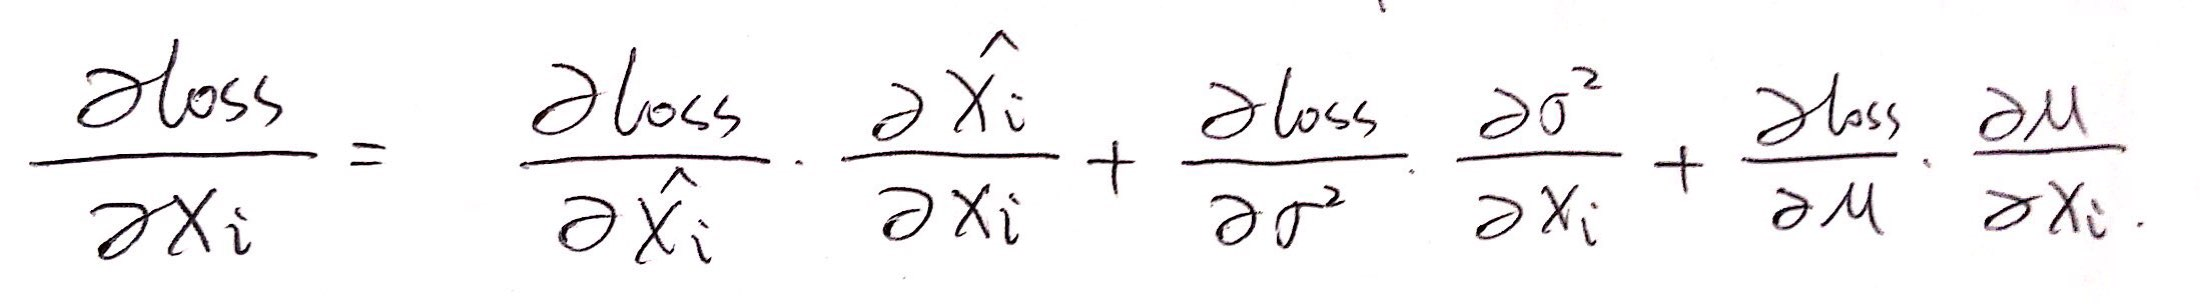 ∂loss/∂x_i = ∂loss/∂x̂_i · ∂x̂_i/∂x_i + ∂loss/∂σ² · ∂σ²/∂x_i + ∂loss/∂μ · ∂μ/∂x_i.